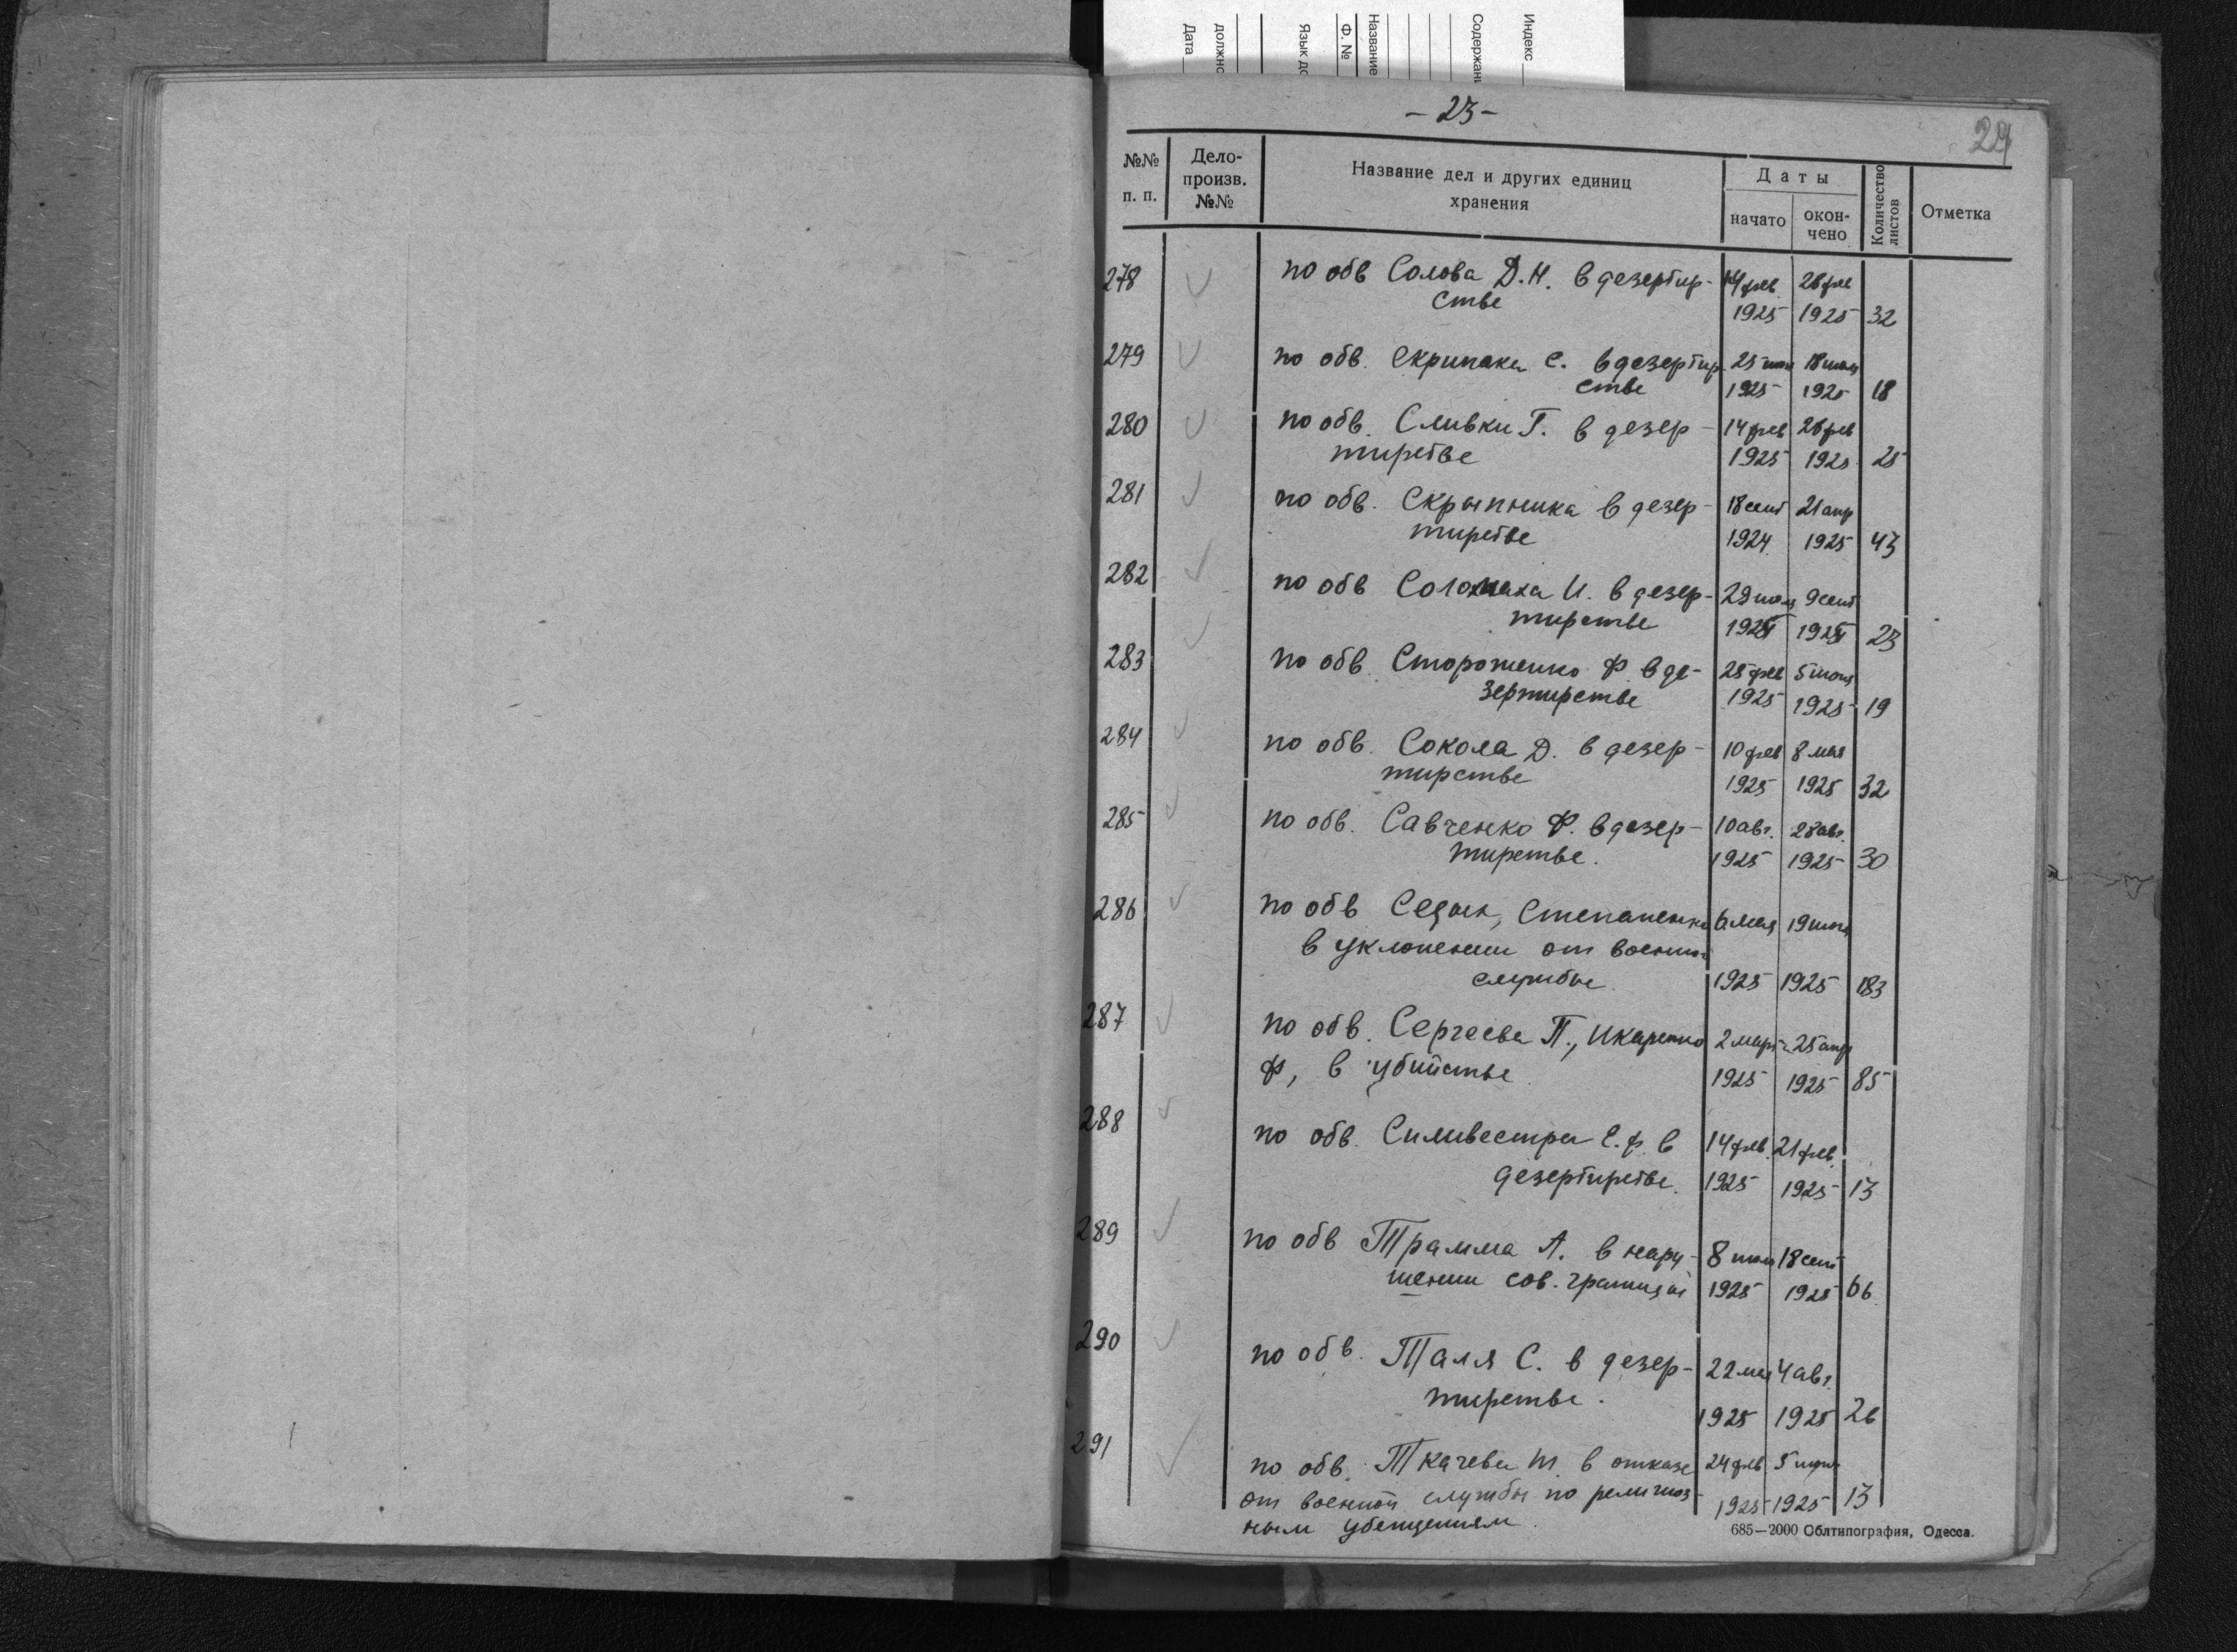 Дата
должно
Язык до
Ф. №
Название
Содержан
Индекс
- 23 -
24
№№ п. п.
Дело-произв. №№
Название дел и других единиц хранения
Даты
начато
окон-чено
Количество листов
Отметка
278 по обв Солова Д.Н. в дезертир- 14 фев 26 фев
стве 1925 1925 32
279 по обв. Скрипака С. в дезертир 25 18
стве 1925 1925 18
280 по обв. Сливки Г. в дезер- 14 фев 26 фев
тирстве 1925 1925 25
281 по обв. Скрыпника в дезер- 18 сент 21 апр
тирстве 1924 1925 43
282 по обв Соломаха И. в дезер- 29 9 сент
тирстве 23
283 по обв. Стороженко Ф. в де- 28 фев 5
зертирстве 1925 1925 19
284 по обв. Сокола Д. в дезер- 10 фев 8 мая
тирстве 1925 1925 32
285 по обв. Савченко Ф. в дезер- 10 авг. 28 авг.
тирстве. 1925 1925 30
286 по обв Седых, Степаненко 6 мая 19
в уклонении от военной
службы 1925 1925 183
287 по обв. Сергеева П., 2 март 25 апр
Ф, в убийстве 1925 1925 85
288 по обв. Силивестра Е.Ф. в 14 фев. 21 фев.
дезертирстве. 1925 1925 13
289 по обв Трамма А. в нару- 8 18 сент
шении сов. границы 1925 1925 66
290 по обв. Таля С. в дезер- 22 мая 4 авг.
тирстве. 1925 1925 26
291 по обв. Ткачева М. в отказе 24 фев 5
от военной службы по религиоз- 1925 1925 13
ным убеждениям.
685—2000 Облтипография, Одесса.